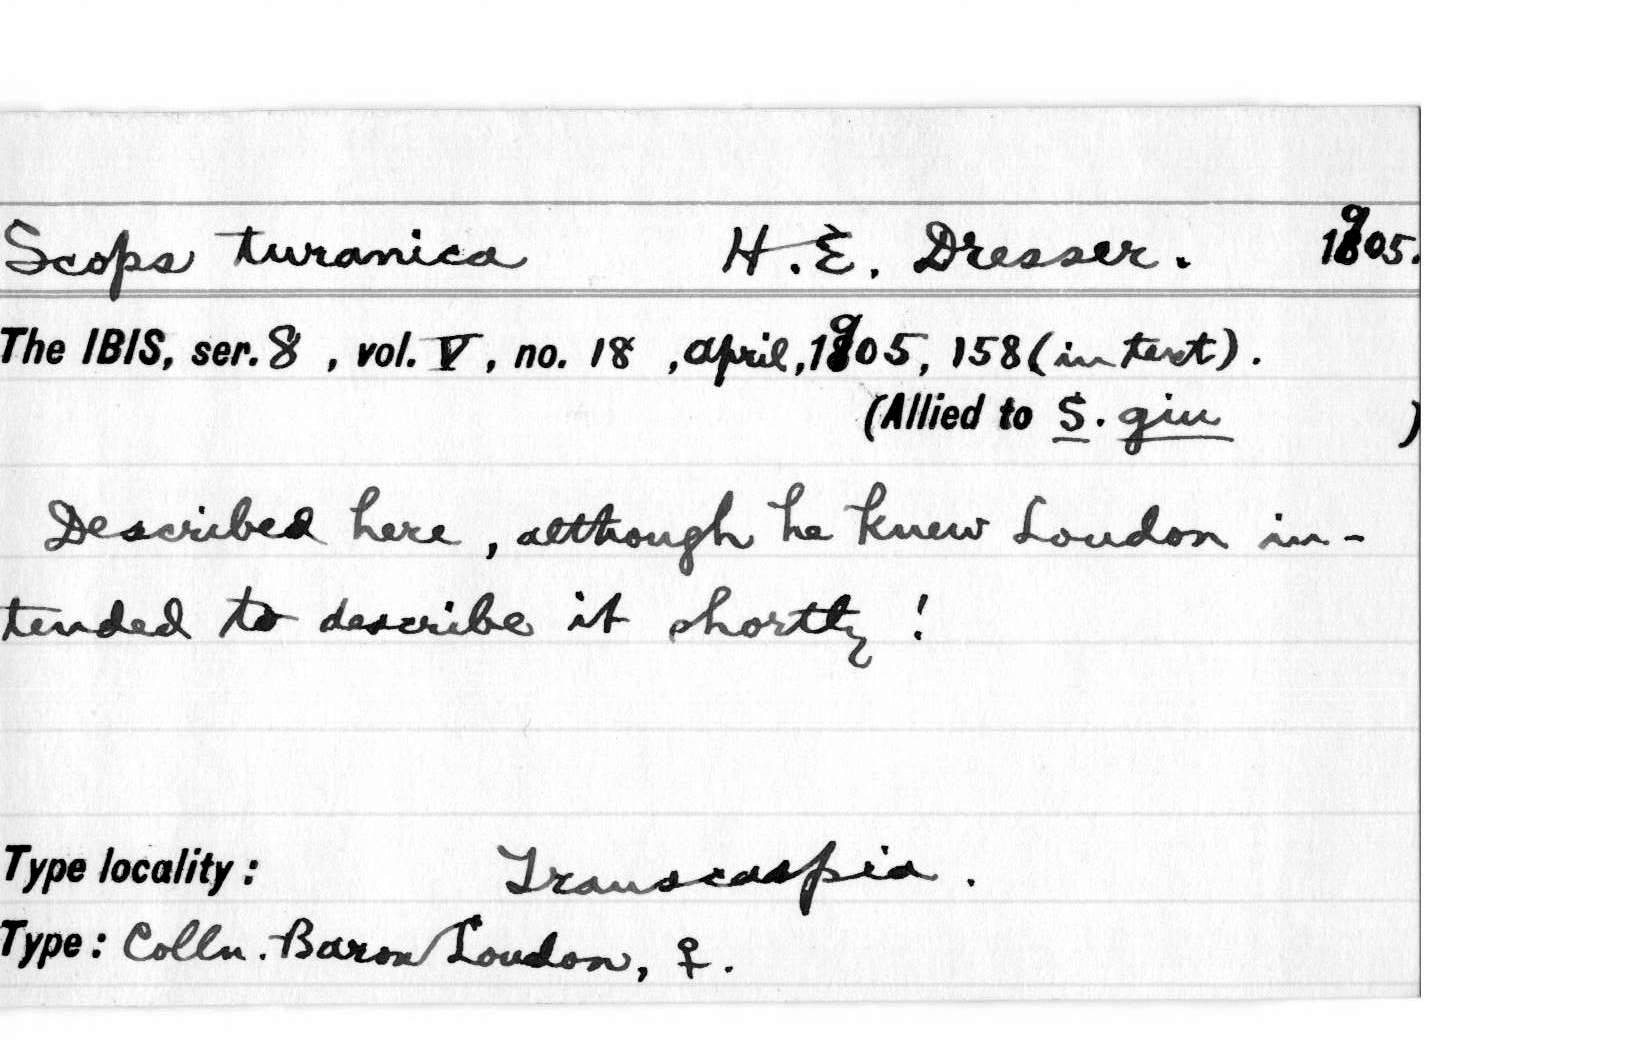 Scops turanica H.E. Dresser. 1905.
The IBIS, ser. 8, vol. V, no. 18, April, 1905, 158 (in text).
(Allied to S. giu )
Described here, although he knew Loudon in-
tended to describe it shortly!
Type locality: Transcaspia.
Type: Colln. Baron Loudon, ♀.